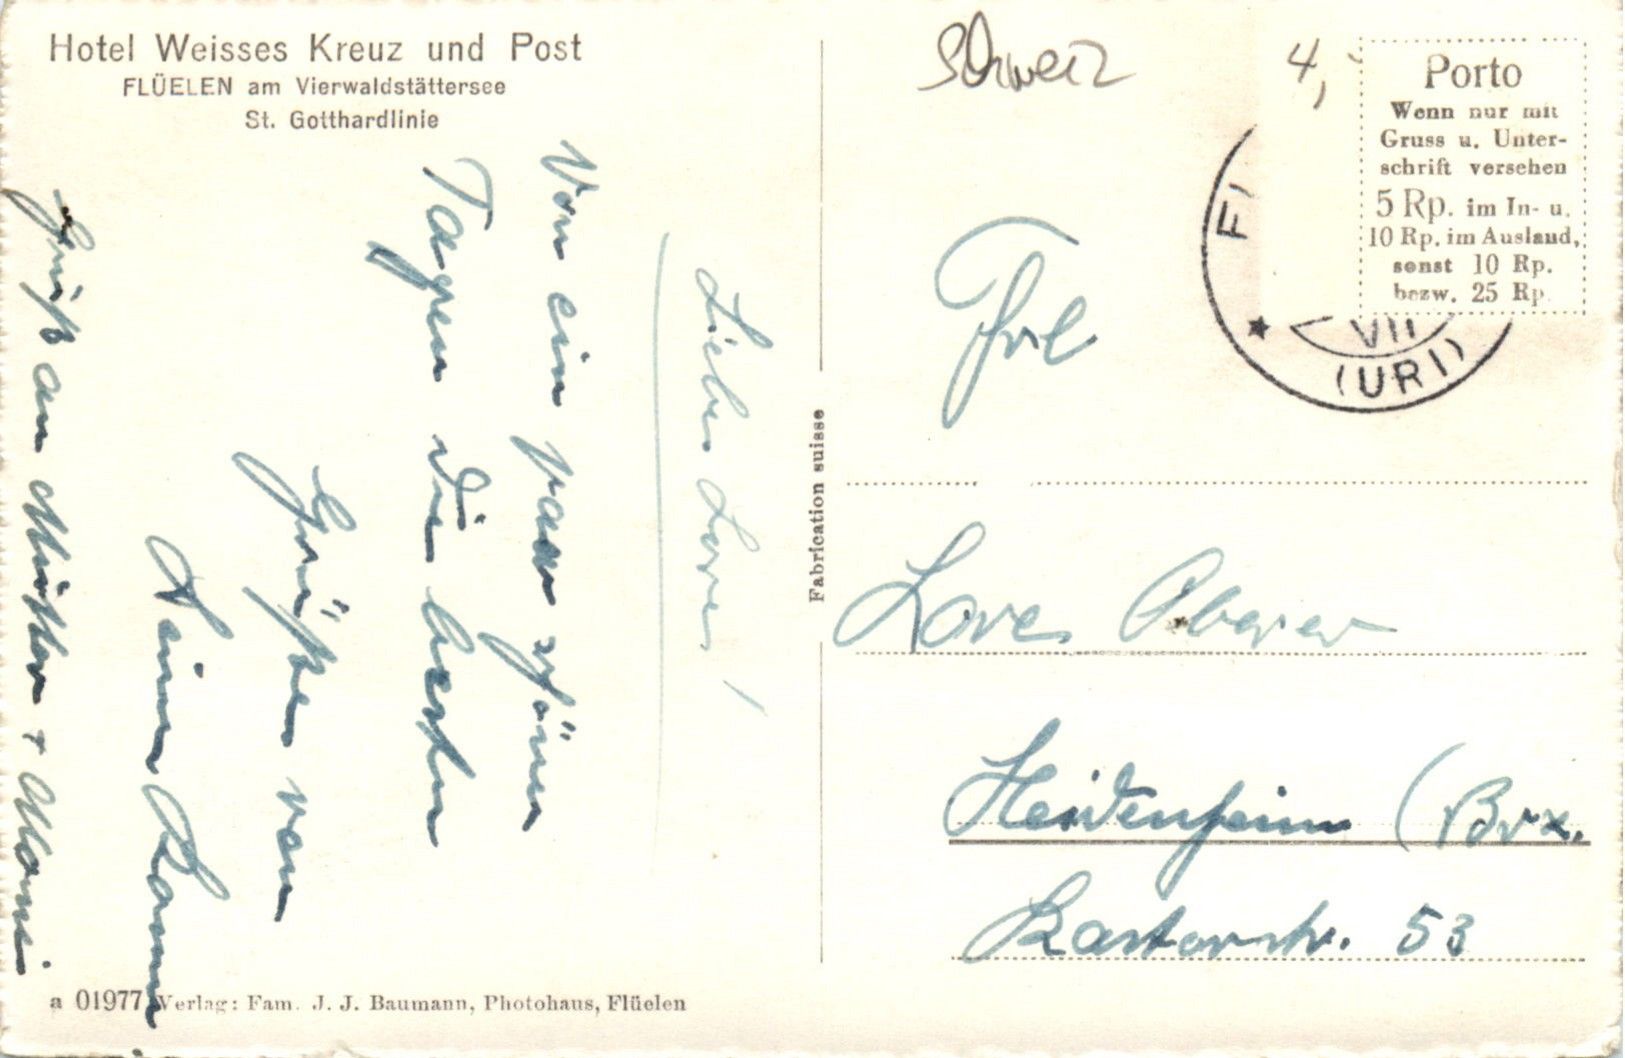 Hotel Weisses Kreuz und Post
FLÜELEN am Vierwaldstättersee
St. Gotthardlinie
Schweiz
4,-
Porto
Wenn nur mit
Gruss u. Unter-
schrift versehen
5 Rp. im In- u.
10 Rp. im Ausland,
sonst 10 Rp.
bezw. 25 Rp.
VII
(URI)
Liebe Lore!
Von ein paar schönen
Tagen die besten
Grüße von
Deinem
Gruß an Mutter + Mami
Frl
Lore Oberer
Heidenheim (Brz.
53
Fabrication suisse
a 01977 Verlag: Fam. J. J. Baumann, Photohaus, Flüelen